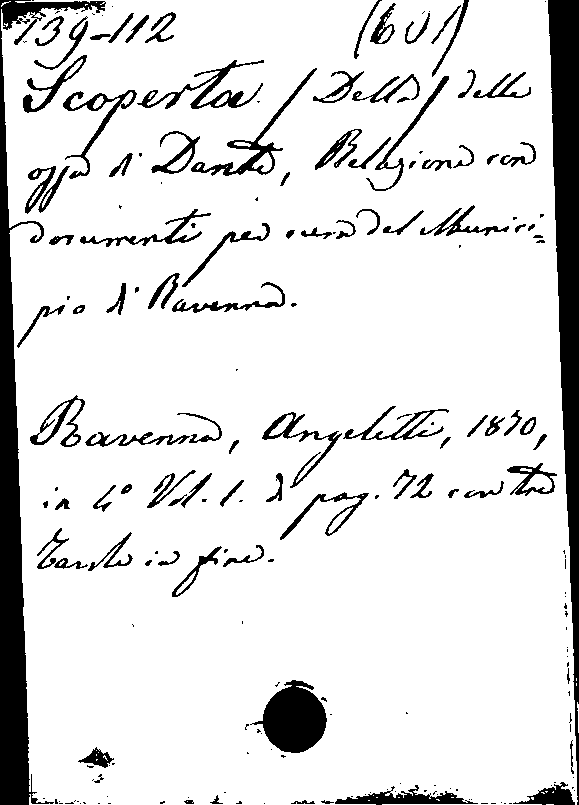 139-112 (601)
Scoperta (Della) delle
ossa di Dante, Relazione con
documenti per cura del Munici=
pio di Ravenna.
Ravenna, Angeletti, 1870,
in 4° Vol. 1. di pag. 72 con tre
Tavole in fine.